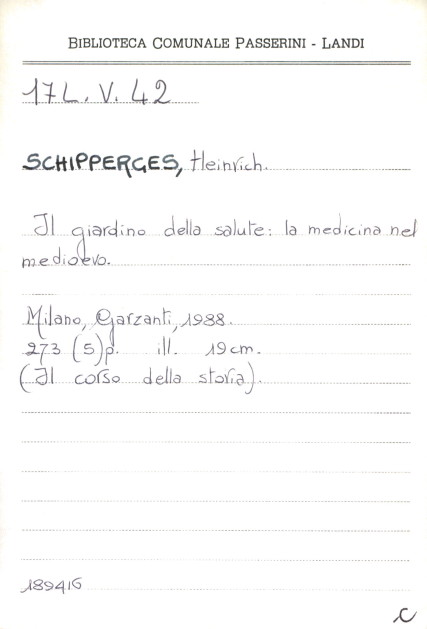 BIBLIOTECA COMUNALE PASSERINI - LANDI
17 L. V. 42
SCHIPPERGES, Heinrich.
Il giardino della salute: la medicina nel
medioevo.
Milano, Garzanti, 1988.
273 (5)p. ill. 19 cm.
(Il corso della storia).
189416
C